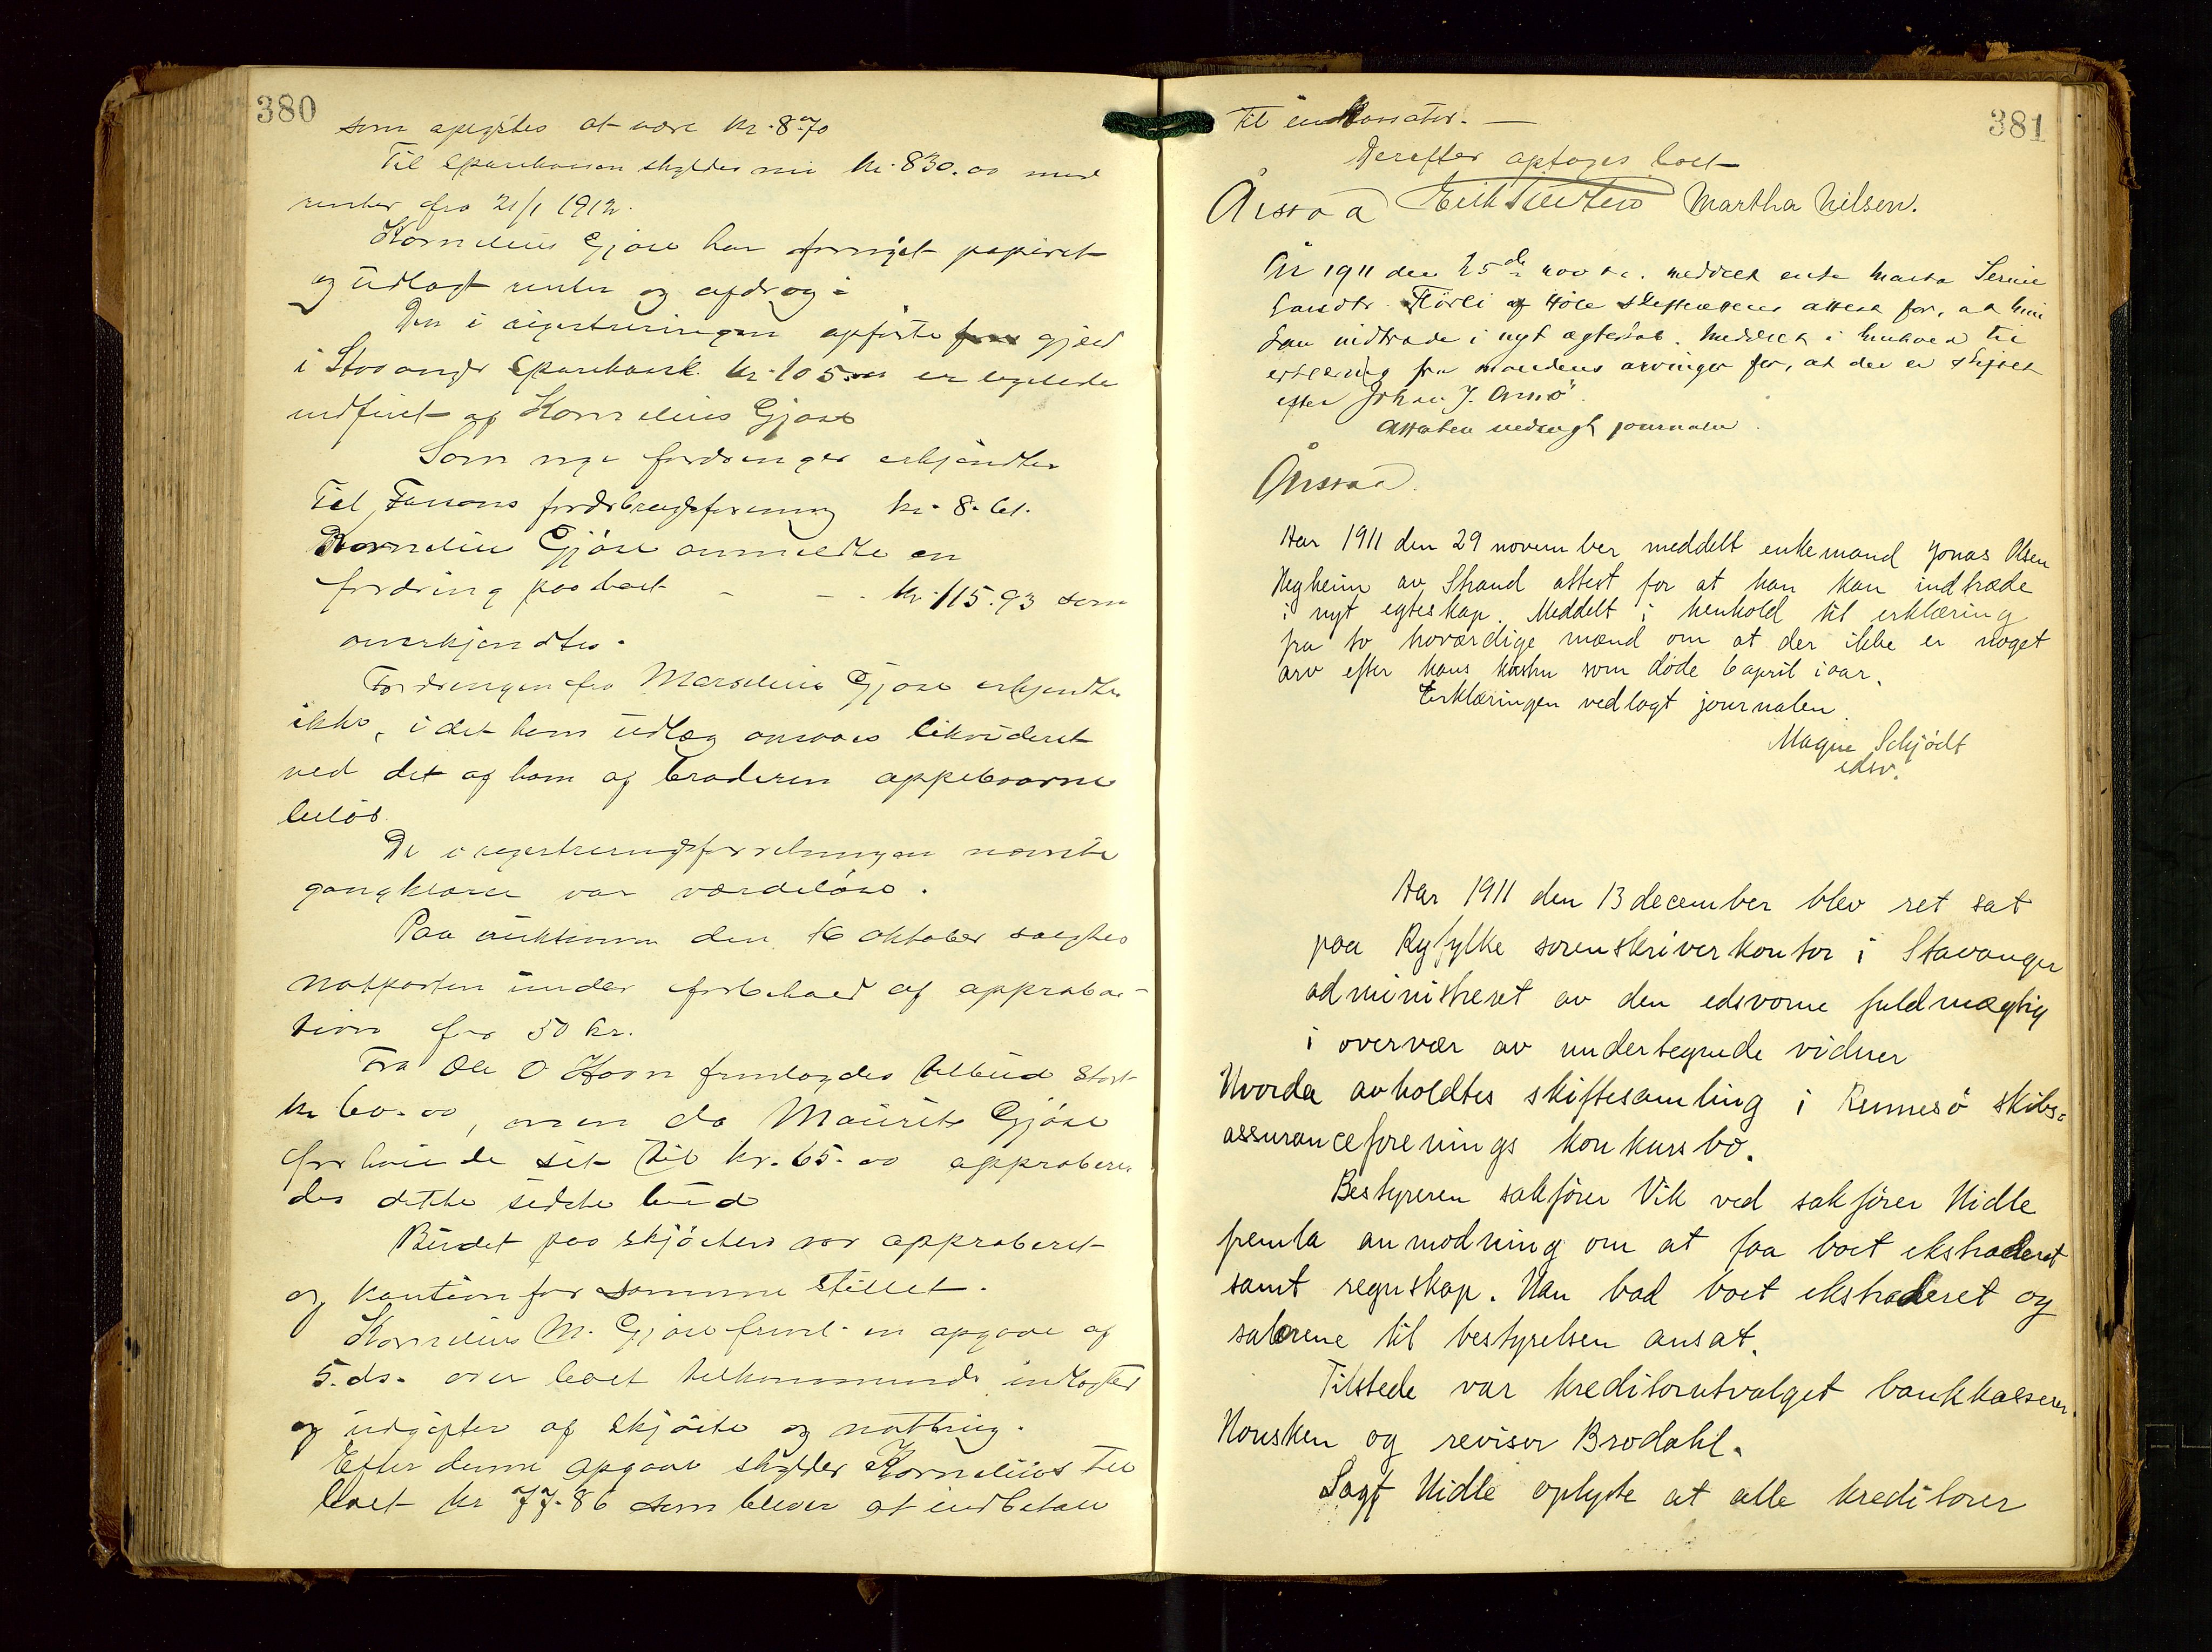 380
som opgites at være kr. 8.70
Til Sparekassen skyldes nu kr. 830.00 med
renter fra 21/1 1912.
Kornelius Gjøse har fornyet papiret
og udlagt renter og afdrag.
Den i registreringen opførte gjæld
i Stavanger Sparekasse kr. 105.00 er ligeledes
indfriet af Kornelius Gjøse
Som nye fordringer erkjendtes
Til forbrugsforening kr. 8.61.
Kornelius Gjøse anmeldte en
fordring paa boet - - kr. 115.93 som
anerkjendtes.
Fordringen fra Marselius Gjøse erkjendtes
ikke, idet hans udlæg ansaaes likvideret
ved det af ham og broderen oppebaarne
beløb.
De i registreringsforretningen nævnte
gangklæer var værdiløse.
Paa auktionen den 16 oktober solgtes
notparten under forbehold af approba-
tion for 50 kr.
Fra Ole O Horn fremlagdes tilbud stort
kr 60.00, men da Maurits Gjøse
forhøiede sit til kr. 65.00 approbere-
des dette sidste bud
Budet paa skjøiten var approberet
og kaution for samme stillet.
Kornelius M. Gjøse freml. en opgave af
5. ds. over boet tilkommende indtægter
og udgifter af skjøite og notbrug.
Efter denne opgave skylder Kornelius til
boet kr 77.86 som bliver at indbetale
381
til inkassator. —
Derefter optoges boet
Årstad Martha Nilsen.
År 1911 den 25de nov. meddelt enke Marta Serine
Flörli af Höle skifterettens attest for, at hun
kan indtræde i nyt ægteskab. Meddelt i henhold til
erklæring fra mandens arvinger for, at der er skiftet
efter Johan J. Arnö.
Attesten vedlagt journalen.
Årstad.
Aar 1911 den 29 november meddelt enkemand Jonas Olsen
Hegheim av Strand attest for at han kan indtræde
i nyt egteskap. Meddelt i henhold til erklæring
fra to troværdige mænd om at der ikke er noget
arv efter hans hustru som døde 6 april i aar.
Erklæringen vedlagt journalen.
Magne Schjödt
edsv.
Aar 1911 den 13 december blev ret sat
paa Ryfylke sorenskriverkontor i Stavanger
administreret av den edsvorne fuldmægtig
i overvær av undertegnede vidner
Hvorda avholdtes skiftesamling i Rennesö skibs-
assuranceforenings konkursbo.
Bestyreren sakfører Vik ved sakfører Hidle
fremla anmodning om at faa boet ekstraderet
samt regnskap. Han bad boet ekstraderet og
salærene til bestyrelsen ansat.
Tilstede var kreditorutvalget bankkasserer
Housken og revisor Brodahl.
Sagf Hidle oplyste at alle kreditorer